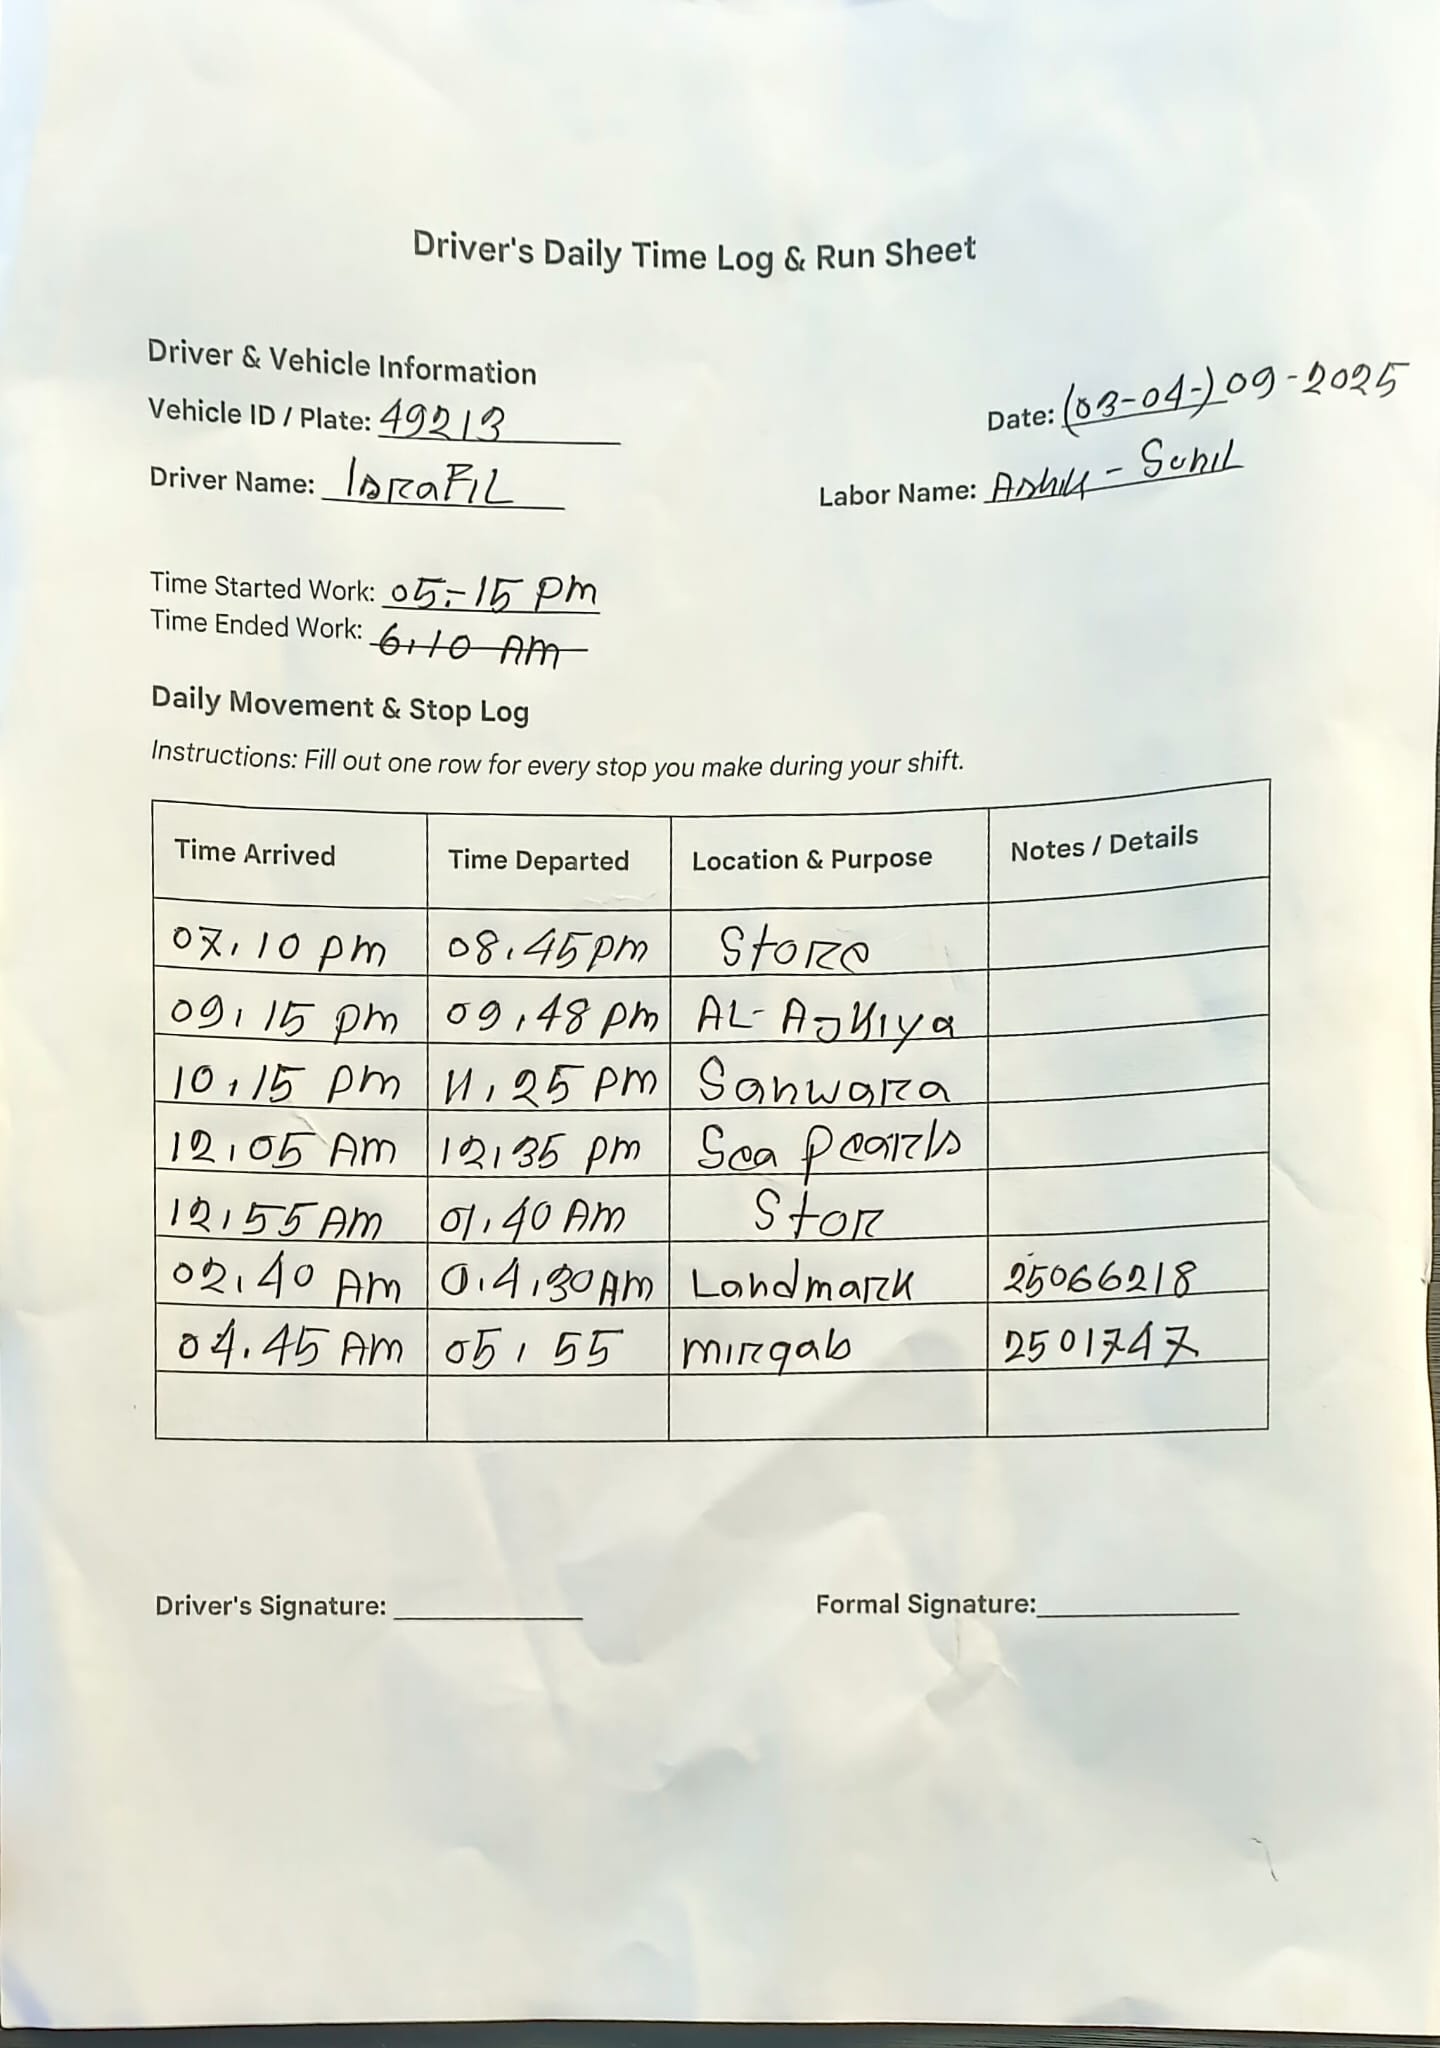 Driver's Daily Time Log & Run Sheet
Driver & Vehicle Information
Vehicle ID / Plate: 49213
Date: (03-04-) 09-2025
Driver Name: IsraFIL
Labor Name: Ashik - Sunil
Time Started Work: 05:-15 Pm
Time Ended Work: 6,10 AM
Daily Movement & Stop Log
Instructions: Fill out one row for every stop you make during your shift.
Time Arrived Time Departed Location & Purpose Notes / Details
07,10 pm 08,45 pm Store
09,15 pm 09,48 pm
10,15 pm 11,25 pm Sanwara
12,05 Am 12,35 pm Sea Pearls
12,55 AM 01,40 AM Stor
02,40 Am 0.4,30 Am Landmark 25066218
04,45 AM 05,55 mirqab 2501747
Driver's Signature:
Formal Signature: